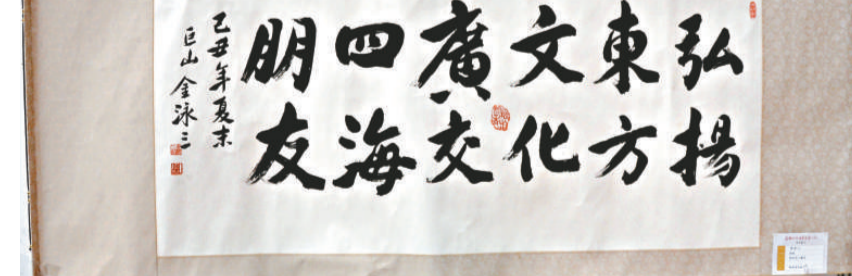 弘揚
東方
文化
廣交
四海
朋友
己丑年夏末
巨山金泳三